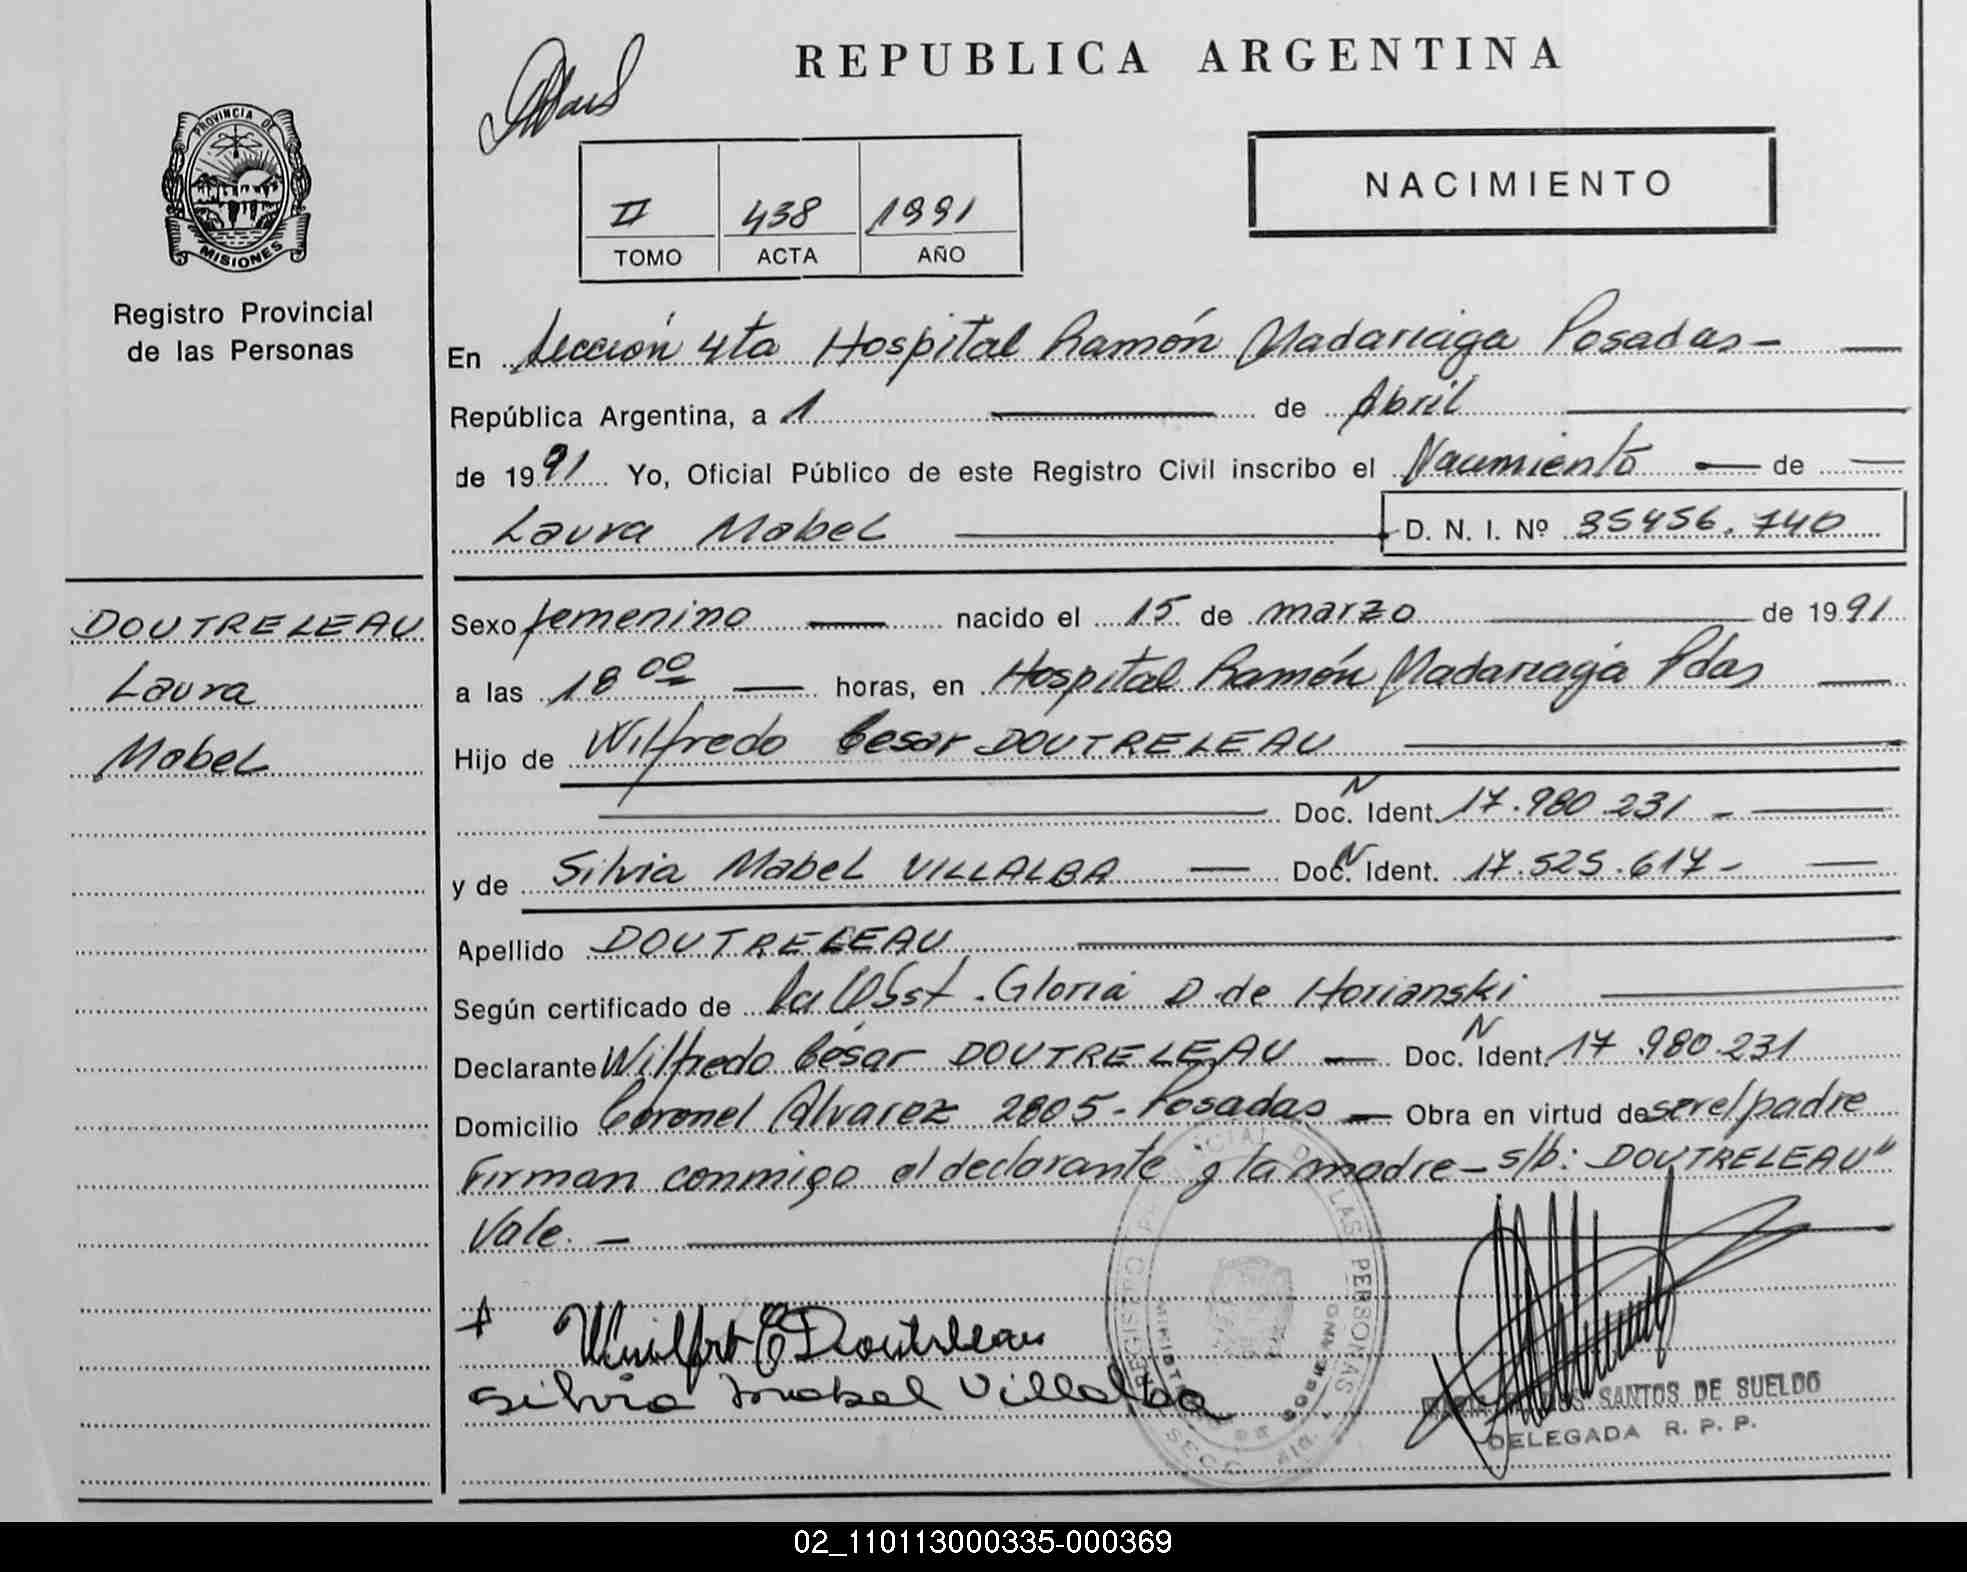 REPUBLICA ARGENTINA
PROVINCIA DE
MISIONES
Registro Provincial
de las Personas
NACIMIENTO
II 438 1991
TOMO ACTA AÑO
En Sección 4ta Hospital Ramón Madariaga Posadas-
República Argentina, a 1 de Abril
de 1991 Yo, Oficial Público de este Registro Civil inscribo el Nacimiento de
Laura Mabel D. N. I. Nº 35456.740
DOUTRELEAU
Laura
Mabel
Sexo femenino nacido el 15 de marzo de 1991
a las 18 00 horas, en Hospital Ramón Madariaga Pdas
Hijo de Wilfredo Cesar DOUTRELEAU
Doc. N Ident. 17.980.231-
y de Silvia Mabel VILLALBA Doc. N Ident. 17.525.617-
Apellido DOUTRELEAU
Según certificado de la Obst. Gloria D de Horianski
Declarante Wilfredo César DOUTRELEAU Doc. N Ident. 17.980.231
Domicilio Coronel Alvarez 2805-Posadas Obra en virtud de ser el padre
Firman conmigo el declarante y la madre- s/b: DOUTRELEAU"
Vale.-
Doutreleau
Silvia Mabel Villalba
REGISTRO PROVINCIAL DE LAS PERSONAS
SANTOS DE SUELDO
DELEGADA R. P. P.
02_110113000335-000369